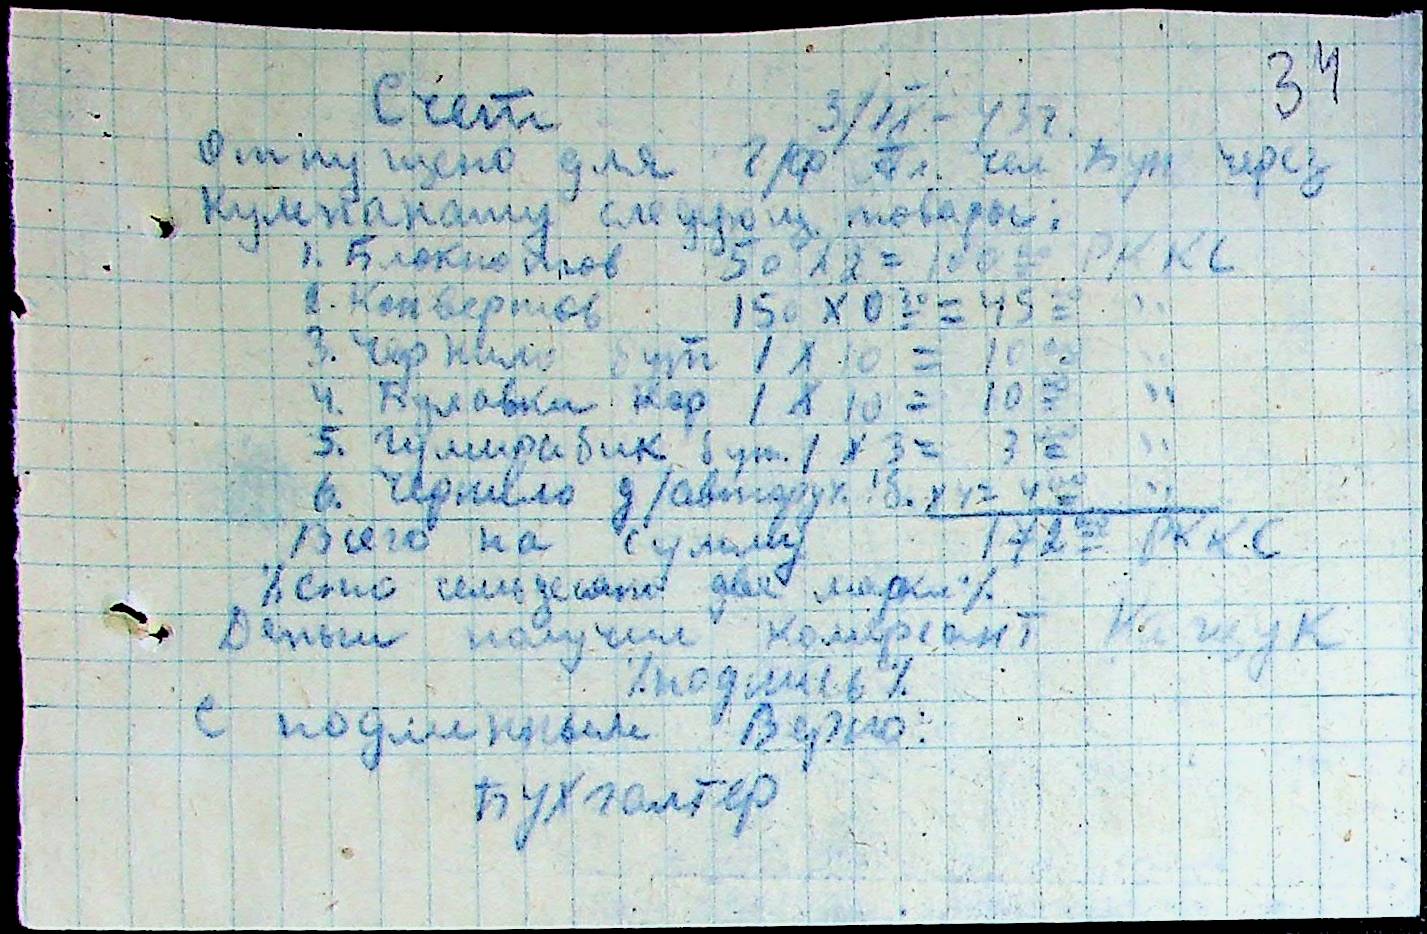 34
Счет 3/IX - 43 г.
Отпущено для Г/Кф через
следующ. товары:
1. Блокнотов 50 х 2 = 100 00 РККС
2. Конвертов 150 х 0 30 = 45 00 "
3. Чернило бут 1 х 10 = 10 00 "
4. Булавки кор 1 х 10 = 10 00 "
5. Гумирабик бут. 1 х 3 = 3 00 "
6. Чернило д/авторуч. 1 б. х 4 = 4 00 "
Всего на сумму 172 00 РККС
% сто семьдесят две марки %
Деньги получил комерсант Кащук
% подпись %
С подлинным Верно:
Бухгалтер